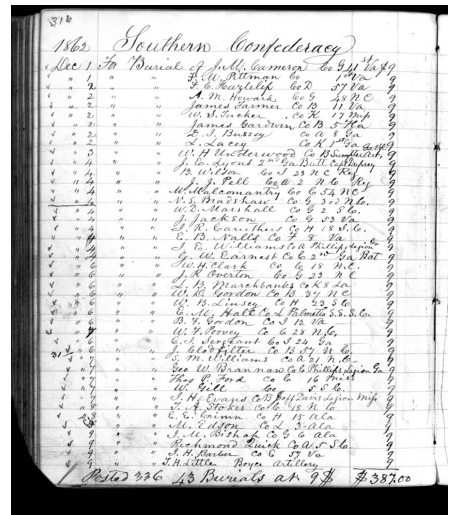 316
1862 Southern Confederacy
Dec 1 For Burial of J. M. Cameron Co G 41st Va 9
" 1 " " P. W. Pittman Co 1st Va 9
" 2 " " F. C. Co D 57 Va 9
" 2 " " A. M. Howard Co G 48 N C 9
" 2 " " James Farmer Co B 11 Va 9
" 2 " " W. S. Tucker Co K 17 Miss 9
" 2 " " James Co B 5 9
" 2 " " D. J. Bussey Co A 8 Ga 9
" 2 " " L. Lacey Co K 1st 9
" 3 " " W. H Underwood Co B Sumpter Art. 9
" " " J. C. Lyons Ga Batt. 9
" 4 " " B. Wilson Co I 23 N C Reg 9
" 4 " " J. J. Pell Co C 2 N C Reg 9
" 4 " " W. Malcomantry Co C 54 N C 9
" 4 " " N. S. Bradshaw Co G N Co. 9
" 4 " " W. D. Marshall Co G 2 S. C. 9
" 4 " " J. Jackson Co G 52 Va 9
" 4 " " J. R. Caruthers Co H 18 S. C. 9
" 4 " " E. B. Nalls Co F 8 Va 9
" 4 " " J. E. Williams Co A Phillips Legion Ga 9
" 4 " " G. W. Earnest Co C 2nd Ga Bat 9
" " " W. H. Clark Co C 18 N. C. 9
" " " J. R Overton Co G 23 N C 9
" " " L. B. Marchbanks Co K 8 La 9
" 6 " " W. D. Gordon Co B 37 N C 9
" 6 " " W. B. Co H 23 S C 9
" 6 " " E. M. Hall Co L Palmetto S. S. S. C. 9
" 6 " " B. F. Gordon Co I 12 Va 9
" " " W. F. Poovey Co C 28 N. C. 9
" 6 " " C. J. Sergeant Co I 24 Ga 9
" 6 " " J. Clodfilter Co B 57 N. C. 9
" 7 " " S. M. Williams Co A 21 N. C. 9
" 7 " " Geo W. Brannan Co C Phillips Legion Ga 9
" 7 " " Thos P. Ford Co C 16 Miss 9
" 7 " " W. Gill Co 5 S. C. 9
" 7 " " J. H. Evans Co B Jeff Davis Legion Miss 9
" 8 " " T. A. Stokes Co C. 18 N Co 9
" 8 " " E. E. Co H 15 Ala 9
" 9 " " M. Edson Co L 5 Ala 9
" 9 " " J. M. Bishop Co G 6 Ala 9
" 9 " " Richmond Quick Co A 5 S Co. 9
" 9 " " J. H. Barber Co C 57 Va 9
" 9 " " T. H. Little Boyce Artillery 9
Posted 336 43 Burials at 9$ $387.00